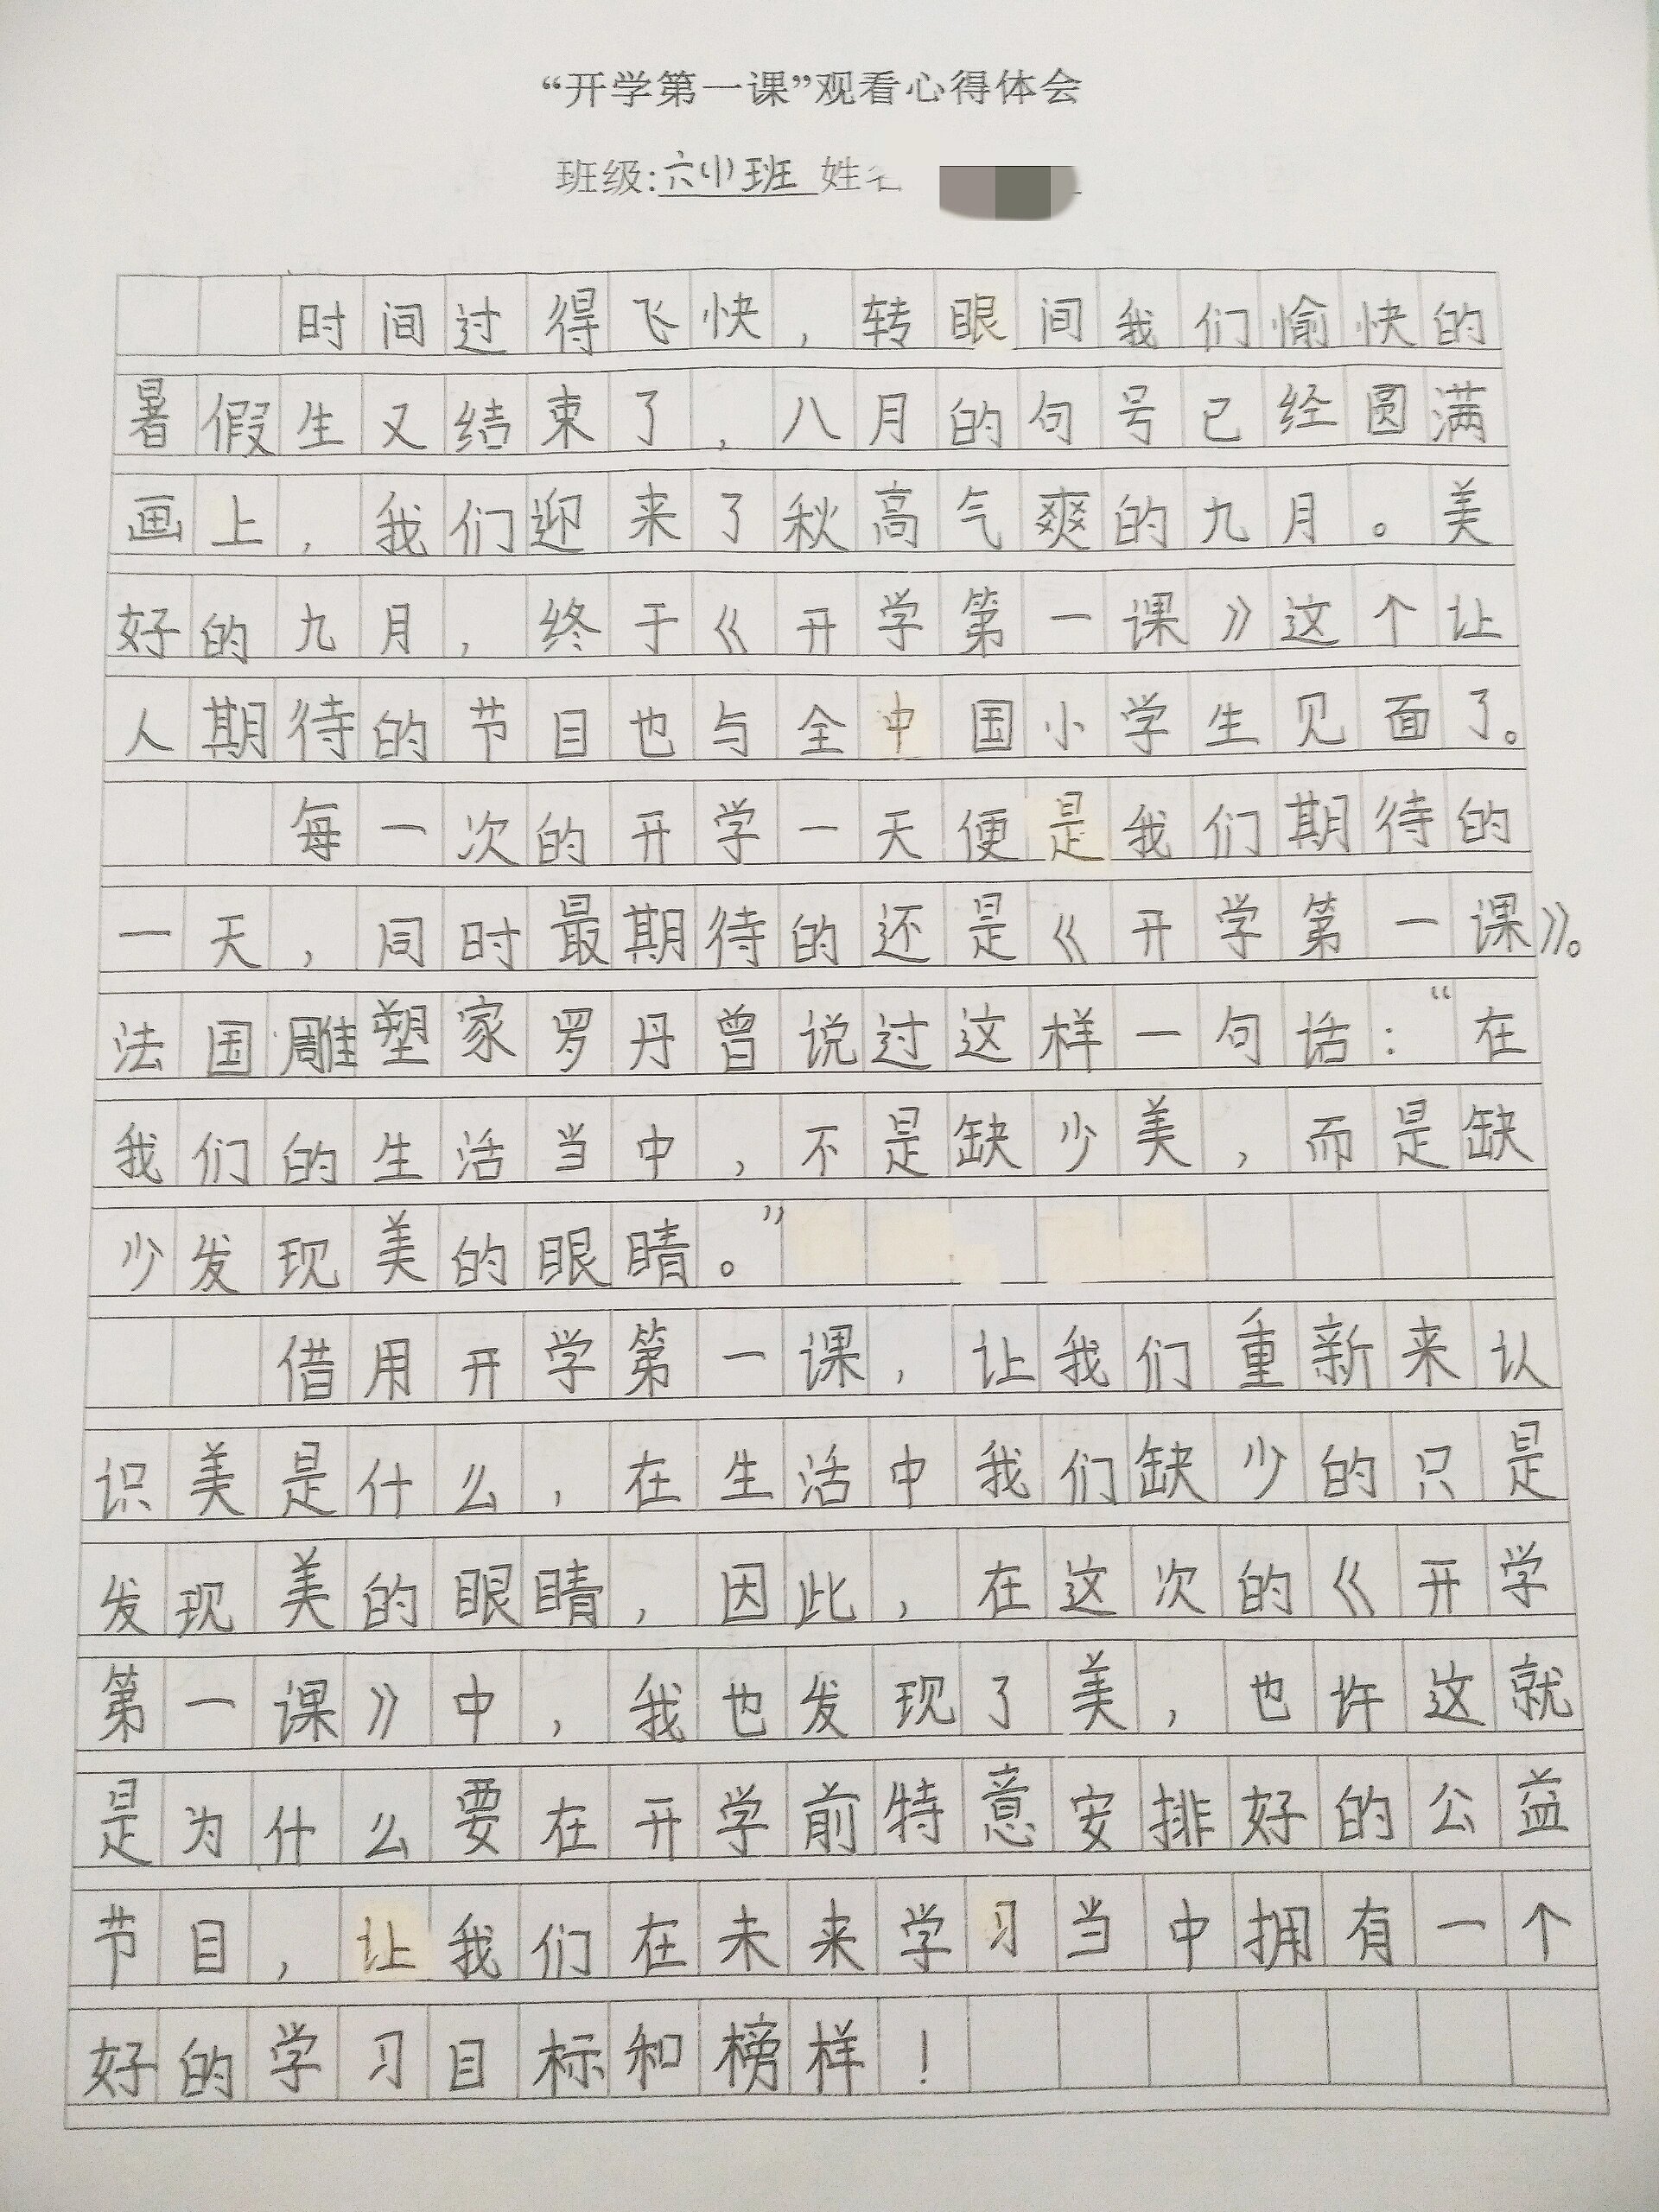 “开学第一课”观看心得体会
班级:六(1)班 姓名
时间过得飞快，转眼间我们愉快的
暑假生又结束了，八月的句号已经圆满
画上，我们迎来了秋高气爽的九月。美
好的九月，终于《开学第一课》这个让
人期待的节目也与全中国小学生见面了。
每一次的开学一天便是我们期待的
一天，同时最期待的还是《开学第一课》。
法国雕塑家罗丹曾说过这样一句话：“在
我们的生活当中，不是缺少美，而是缺
少发现美的眼睛。”
借用开学第一课，让我们重新来认
识美是什么，在生活中我们缺少的只是
发现美的眼睛，因此，在这次的《开学
第一课》中，我也发现了美，也许这就
是为什么要在开学前特意安排好的公益
节目，让我们在未来学习当中拥有一个
好的学习目标和榜样！